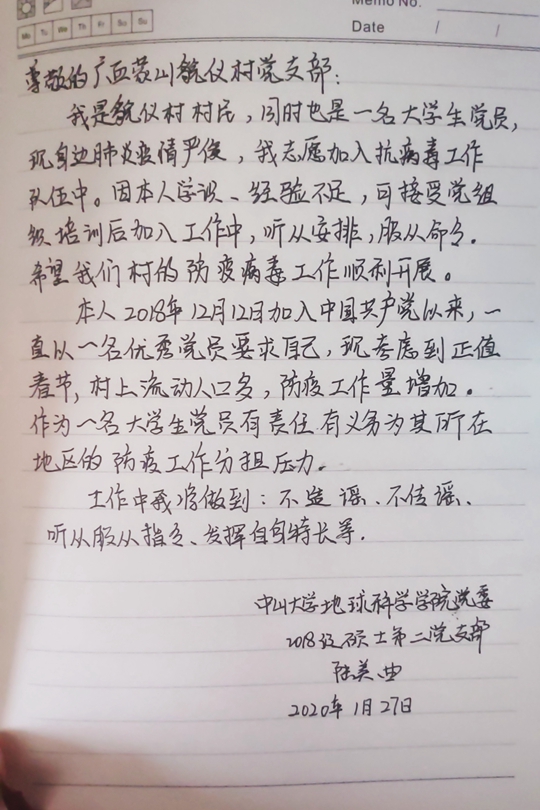 Memo No.
Mo Tu We Th Fr Sa Su
Date / /
尊敬的广西蒙山貌仪村党支部：
我是貌仪村村民，同时也是一名大学生党员，
现身边肺炎疫情严俊，我志愿加入抗病毒工作
队伍中。因本人学识、经验不足，可接受党组
织培训后加入工作中，听从安排，服从命令。
希望我们村的防疫病毒工作顺利开展。
本人2018年12月12日加入中国共产党以来，一
直以一名优秀党员要求自己，现考虑到正值
春节，村上流动人口多，防疫工作量增加。
作为一名大学生党员有责任有义务为其所在
地区的防疫工作分担压力。
工作中我将做到：不造谣、不传谣、
听从服从指令、发挥自身特长等.
中山大学地球科学学院党委
2018级硕士第二党支部
陆美曲
2020年1月27日